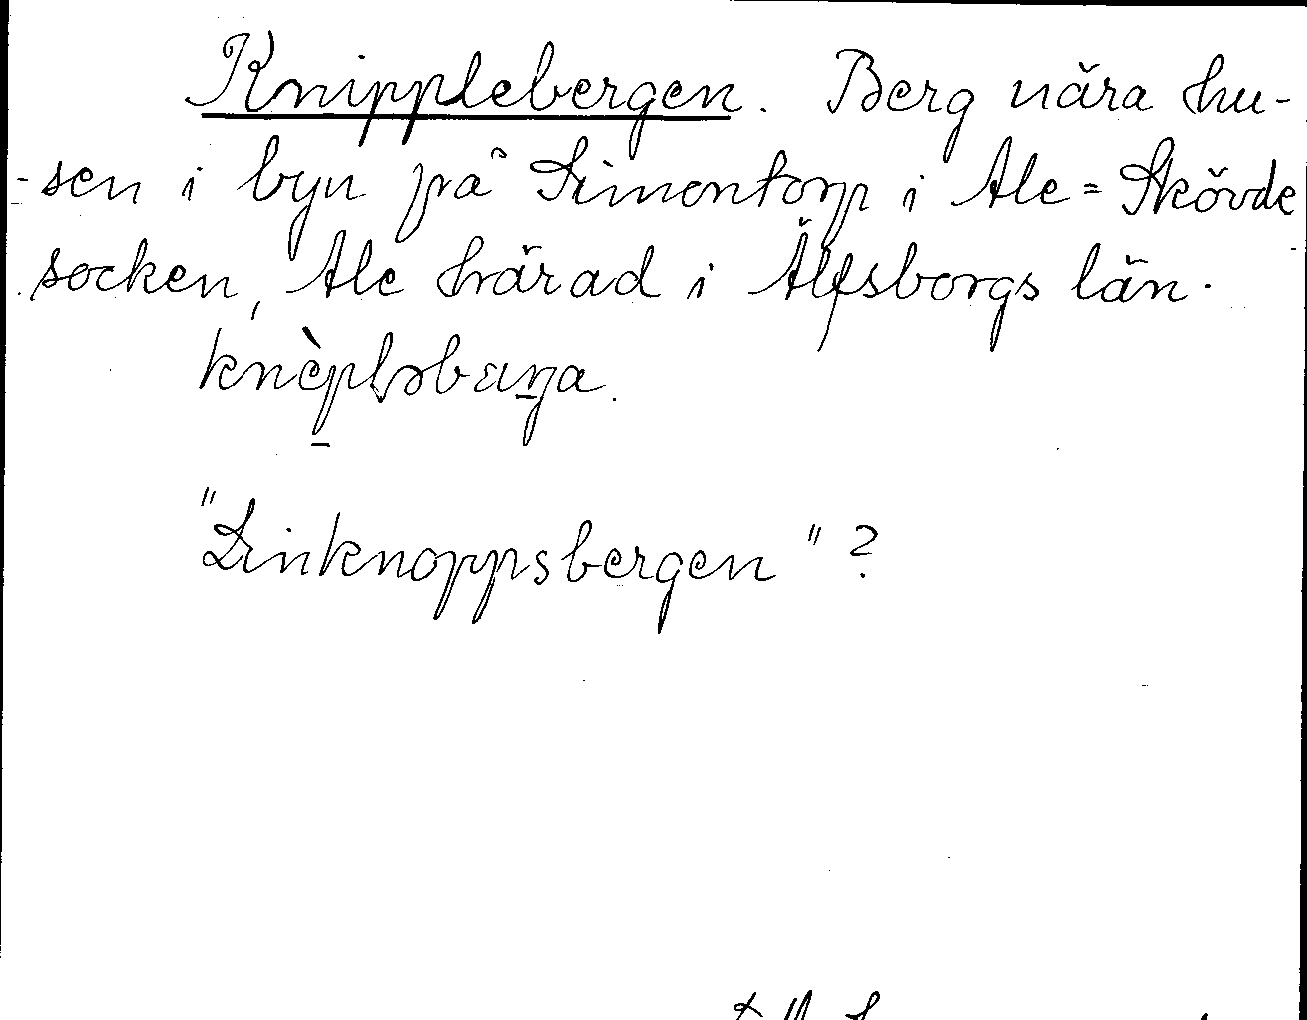 Knipplebergen. Berg nära hu-
-sen i byn på Simontorp i Ale=Skövde
socken, Ale härad i Älfsborgs län.
"Linknoppsbergen"?